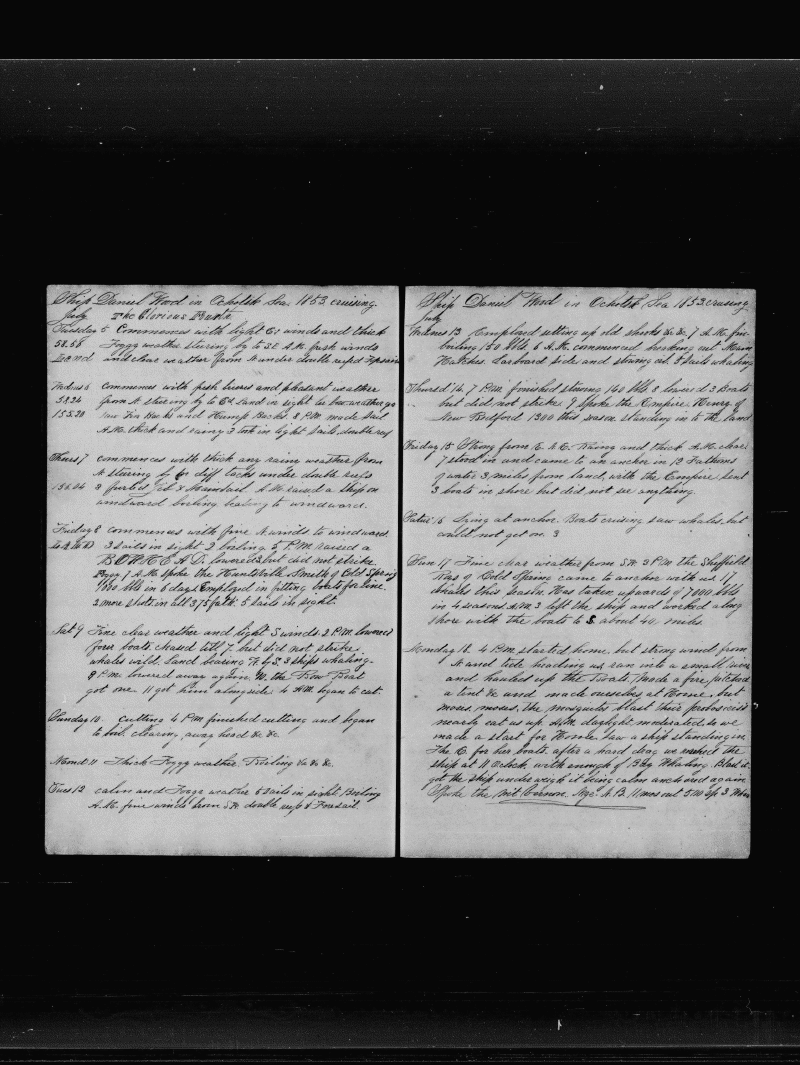 Ship Daniel Wood in Ocholsk Sea 1853 cruising.
July The Glorious
Tuesday 5 Commences with light Ed winds and thick
58.58 Foggy weather stearing by to S.E. A.M. fresh winds
and clear weather from N under double reefd Topsails
Wednes 6 commences with fresh breeses and pleasant weather
58.24 from N stearing by to Ed Land in sight
155.20 saw Fin Backs and Hump Backs. 8 P.M. made sail
A.M. thick and rainy 3 in sight Sails double reef
Thurs 7 commences with thick any rain weather from
N stearing by on diff tacks under double reefs
156.04 & furled Jib & Mainsail A.M. raised a ship on
windward boiling beating to windward.
Friday 8 commences with fine N winds to windward.
3 sails in sight 2 boiling. 5 P.M. raised a
BOHHEAD. lowered but did not strike
Foggy 1 A.M. spoke the Huntsville Smith of Cold Spring
1100 bbls in 6 days Employed in fitting boats for line
2 more shots in all 375 fath. 5 sails in sight.
Sat 9 Fine clear weather and light S winds. 2 P.M. lowered
four boats. chased till 7. but did not strike
whales wild. Land bearing W by S. 3 ships whaling.
9 P.M. lowered away again. M. the Bow Boat
got one 11 got him alongside. 4 A.M. began to cut.
Sunday 10. Cutting 4 P.M. finished cutting and began
to boil. clearing away head &c &c.
Mond 11 Thick Foggy weather. Boiling &c &c.
Tues 12 calm and Foggy weather 6 sails in sight. Boiling
A.M. fine winds from SW double reefs & Foresail.
Ship Daniel Wood in Ocholsk Sea 1853 cruising
July
Wednes 13 Employed setting up old shooks &c &c. 7 A.M. fin
boiling 150 bbls. 6 A.M. commenced breaking out Main
Hatches. Larboard side and stowing oil. 5 sails whaling
Thursd 14. 7 P.M. finished stowing 160 bbls 8 lowered 3 Boats
but did not strike 9 spoke the Empire. Henry of
New Bedford 1300 this season standing in to the land
Friday 15 Strong from E. & E. Rainy and thick A.M. clear.
7 stood in and came to an anchor in 12 Fathoms
of water 3 miles from land, with the Empire, sent
3 boats in shore but did not see anything.
Satur 16 Lying at anchor. Boats cruising saw whales, but
could not get on. 3
Sun 17 Fine clear weather from SW 3 P.M. the Sheffield
of Cold Spring came to anchor with us. 11
whales this season. Has taken upwards of 7000 bbls
in 4 seasons. A.M. 3 left the ship and worked along
shore with the boats to S. about 40 miles.
Monday 18. 4 P.M. started home. but strong wind from
N and tide heading us, ran into a small river
and hauled up the Boats, made a fire, pitched
a tent &c and made ourselves at Home, but
mouss, mouss, the mosquito blast their
nearly eat us up. A.M. daylight moderated, so we
made a start for Home. saw a ship standing in
the E. for her boats. after a hard drag we reached the
ship at 11 oclock, with enough of Bay Whaling. Blast it.
got the ship under weigh it being calm anchored again
Spoke the Mt Vernon. Nye. N.B. 11 mos out 3